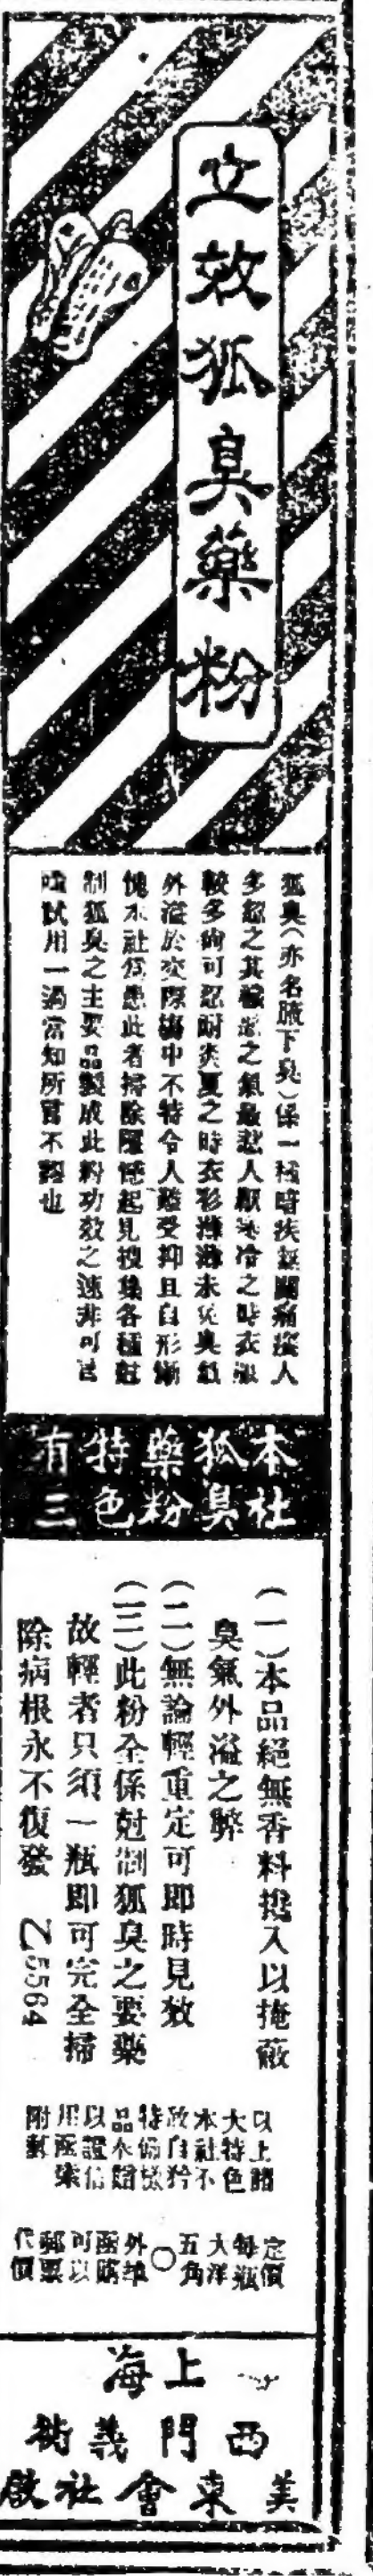 立效狐臭藥粉
狐臭(亦名腋下臭)係一種暗疾無關痛癢人
多忽之其之氣最惹人厭冷之時衣服
較多尚可忍耐炎夏之時衣衫未免臭氣
外溢於交際場中不特令人難受抑且自形慚
愧本社為患此者掃除隱憾起見搜集各種尅
制狐臭之主要品製成此粉功效之速非可言
喻試用一過當知所言不謬也
本社狐臭藥粉特色有三
(一)本品絕無香料攙入以掩蔽
臭氣外溢之弊
(二)無論輕重定可即時見效
(三)此粉全係尅制狐臭之要藥
故輕者只須一瓶即可完全掃
除病根永不復發 乙5564
以上諸
大特色
本社不
敢自矜
特備樣
品不賠
以證信
用函索
附郵
定價
每瓶
大洋
五角
○
外埠
函購
可以
郵票
代價
上海
西門義街
美東會社啟